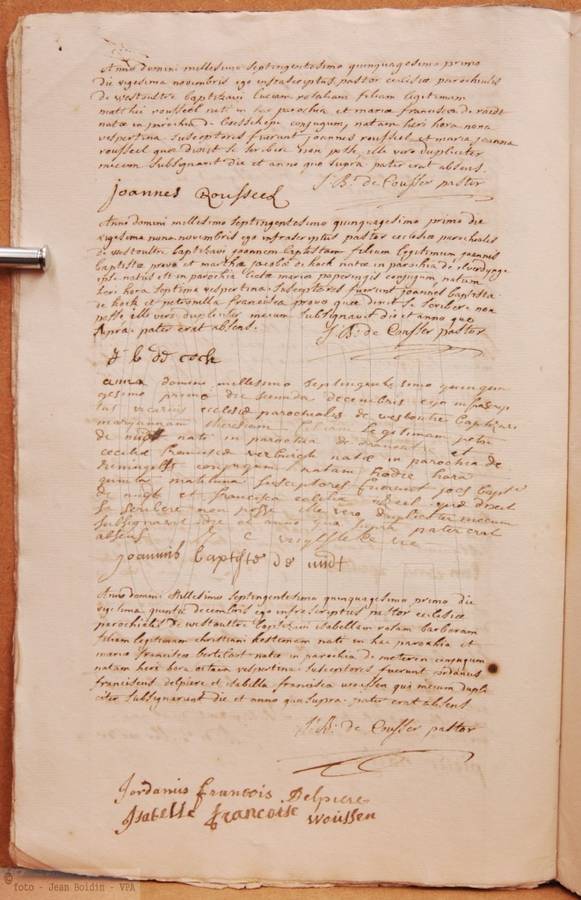 Anno domini millesimo septingentesimo quinquagesimo primo
die vigesima novembris ego infrascriptus pastor ecclesiæ parochialis
de westoutre baptizavi luciam rosaliam filiam legitimam
matthæi rousseel nati in hac parochia et mariæ franciscæ de raedt
natæ in parochia de boesschepe conjugum, natam heri hora nona
vespertina susceptores fuerunt joannes rousseel et maria joanna
rousseel quæ dixit se scribere non posse, ille vero dupliciter
mecum subsignavit die et anno quo supra pater erat absens.
J: B: de Cousser pastor
joannes Rousseel
Anno domini millesimo septingentesimo quinquagesimo primo die
vigesima nona novembris ego infrascriptus pastor ecclesiæ parochialis
de westoutre baptizavi joannem baptistam filium legitimum joannis
baptistæ provo et marthæ jacobæ de kock natæ in parochia de
nati et in parochia beatæ mariæ poperingis conjugum natum
heri hora septima vespertina susceptores fuerunt joannes baptista
de kock et petronilla francisca provo quæ dixit se scribere non
posse ille vero dupliciter mecum subsignavit die et anno quo
supra pater erat absens.
J: B: de Cousser pastor
j b de cock
anno domino millesimo septingentesimo quinqua
gesimo primo die secunda decembris ego infrascrip
tus vicarius ecclesiæ parochialis de westoutre baptizavi
mariannam theresiam filiam legitimam petri
de nati in parochia de et
ceciliæ franciscæ verburgh natæ in parochia de
conjugum natam hodie hora
quinta matutina susceptores fuerunt joes bapte
de et francisca cecilia quæ dixit
se scribere non posse ille vero dupliciter mecum
subsignavit die et anno quo supra pater erat
absens
joannis baptiste de
Anno domini Millesimo septingentesimo quinquagesimo primo die
vigesima quinta decembris ego infrascriptus pastor ecclesiæ
parochialis de westoutre baptizavi isabellam rosam barbaram
filiam legitimam christiani kesteman nati in hac parochia et
mariæ franciscæ berteloot natæ in parochia de meteren conjugum
natam heri hora octava vespertina susceptores fuerunt jordanus
franciscus delpiere et isabella francisca woussen qui mecum dupli
citer subsignarunt die et anno quo supra pater erat absens
J: B: de Cousser pastor
Jordanus francois Delpiere
Isabelle francoise woussen
© foto - Jean Boldin - VPA